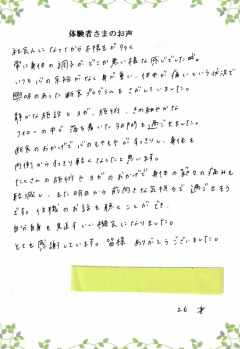 体験者さまのお声
社会人になってから不調が多く
常に身体の調子がどこか悪い様な感じでした。
いつも心の余裕がなく身が重い、体中が痛いという状況で
興味のあった断食プログラムをさがしていました。
静かな施設とヨガ、施術、きめ細やかな
フォローの中で 過ごせました。
断食のおかげで心のもやもやがすっきりし、身体も
内側からすっきり軽くなったと思います。
たくさんの施術やヨガのおかげで身体の節々の痛みも
軽減し、また明日から前向きな気持ちで過ごせそう
です。住職のお話も聴くことができ、
自分自身を見直すいい機会になりました。
とても感謝しています。皆様 ありがとうございました。
26才